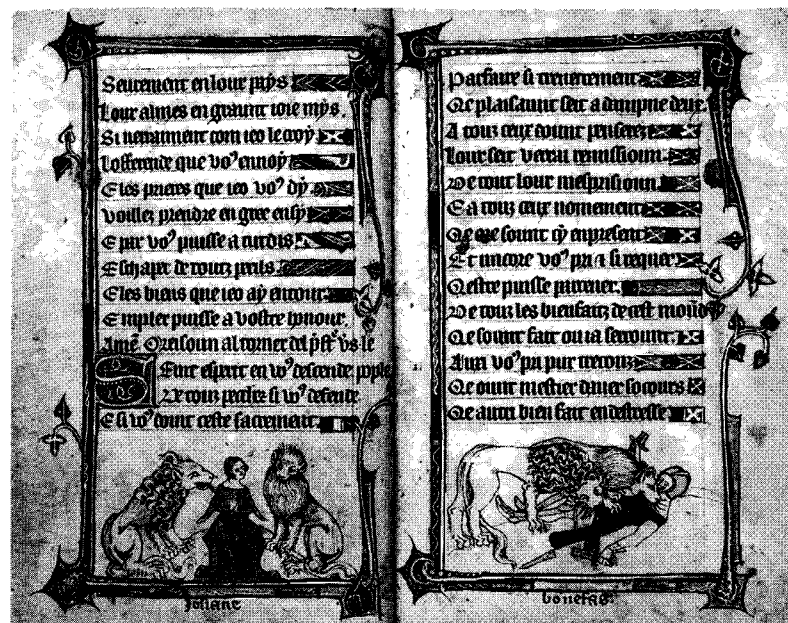 Seurement en lour p̃ys
Lour almes en graunt ioie mys.
Si uerraiment com ieo le croy
Loffrende que voꝰ ennoy
E les prieres que ieo voꝰ dy
voillez prendre en gree ensy
E par voꝰ puisse a
Eschaper de touz perils
E les biens que ieo ay entour
Emploier puisse a vostre honour.
Amē Oreisoun al del
Seint espirit en voꝰ descende
De touz pecchez si voꝰ defende
E si voꝰ doint ceste sacrement
Parfaire si
Qe plaisaunt seit a dampne deu.
A touz ceux doint penserez
Lour seit verrai remissioun
De tout lour mesprisioun
E a touz ceux nomement
Qe ore sount cy en present
Et uncore voꝰ pri a si requer
Qestre puisse parcener
De touz les bienfaitz de cest mond
Qe sount fait ou ia serrount
Auxi voꝰ pri pur
Qe ount mestier dauer socours
Qe autri bien fait en destresse
Joliane
bonefas